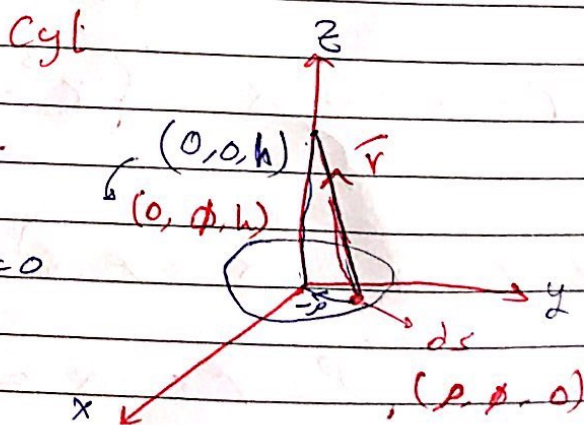 Cyl
z
(0,0,h)
r̄
(0, ϕ, h)
=0
-ρ
y
ds
x
(ρ, ϕ, 0)